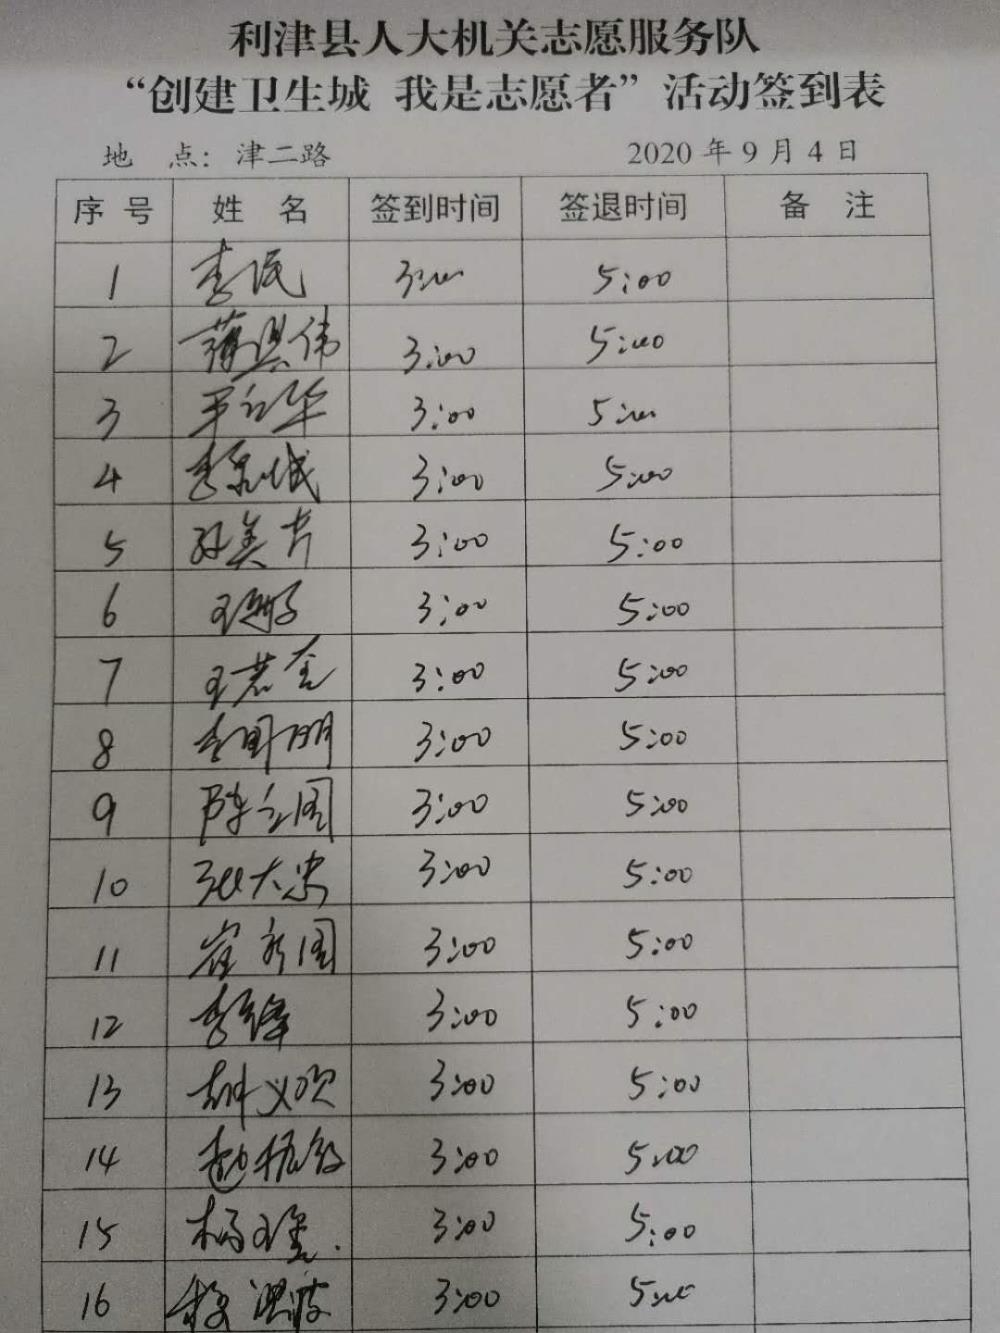 利津县人大机关志愿服务队
“创建卫生城 我是志愿者”活动签到表
地 点：津二路 2020年9月4日
序号 姓名 签到时间 签退时间 备注
1 李民 3:00 5:00
2 蒲洪伟 3:00 5:00
3 华 3:00 5:00
4 李 城 3:00 5:00
5 孙美芳 3:00 5:00
6 王 3:00 5:00
7 王若全 3:00 5:00
8 李国明 3:00 5:00
9 陈立国 3:00 5:00
10 张大忠 3:00 5:00
11 崔新国 3:00 5:00
12 李锋 3:00 5:00
13 胡义欣 3:00 5:00
14 赵振 3:00 5:00
15 杨玉金 3:00 5:00
16 波 3:00 5:00